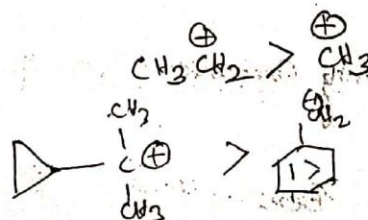 ⊕ ⊕
CH3 CH2 > CH3
CH3 ⊕CH2
C ⊕ >
CH3